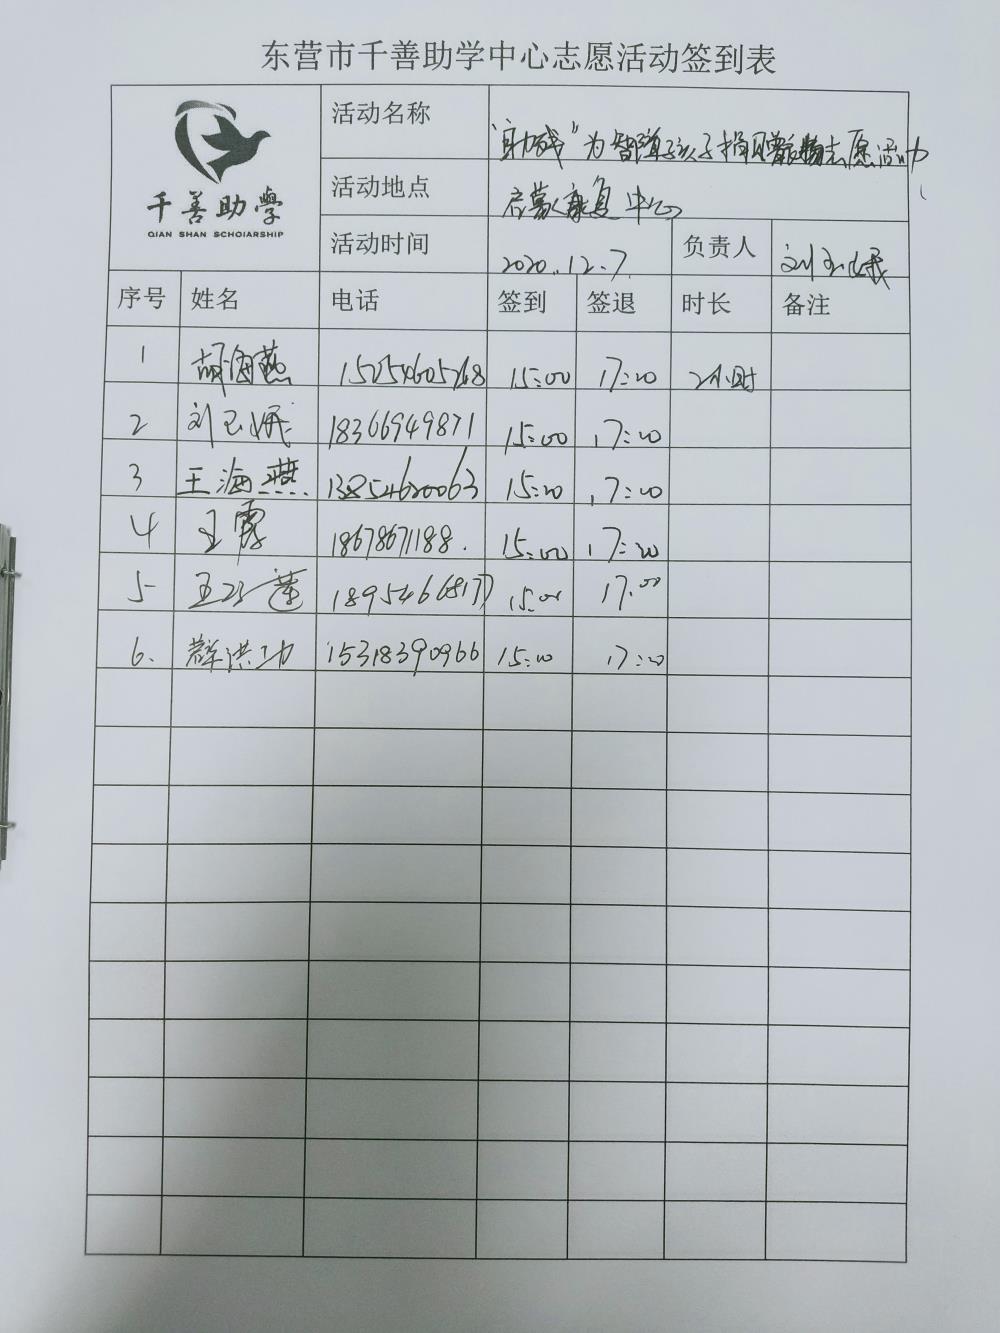 东营市千善助学中心志愿活动签到表
千善助學
QIAN SHAN SCHOLARSHIP
活动名称 "助残"为智障孩子捐赠衣物志愿活动
活动地点 启蒙康复中心
活动时间 2020.12.7 负责人 刘玉娥
序号 姓名 电话 签到 签退 时长 备注
1 胡海燕 15254605268 15:00 17:20 2小时
2 刘玉娥 18366949871 15:00 17:20
3 王海燕 13854620063 15:20 17:20
4 王霞 18678671188. 15:00 17:20
5 王 莲 15:00 17:00
6. 洪功 15318390966 15:20 17:20